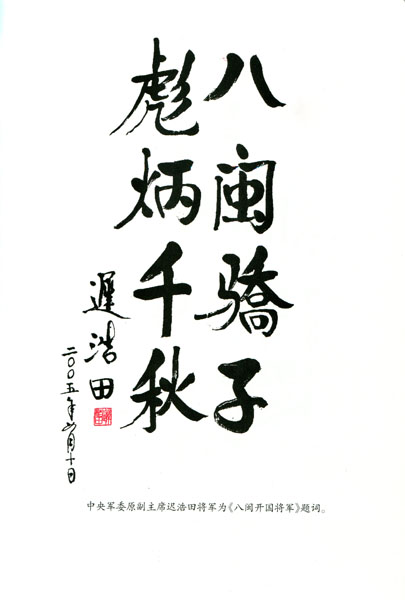 八闽骄子
彪炳千秋
遲浩田
二〇〇五年六月十日
中央军委原副主席迟浩田将军为《八闽开国将军》题词。